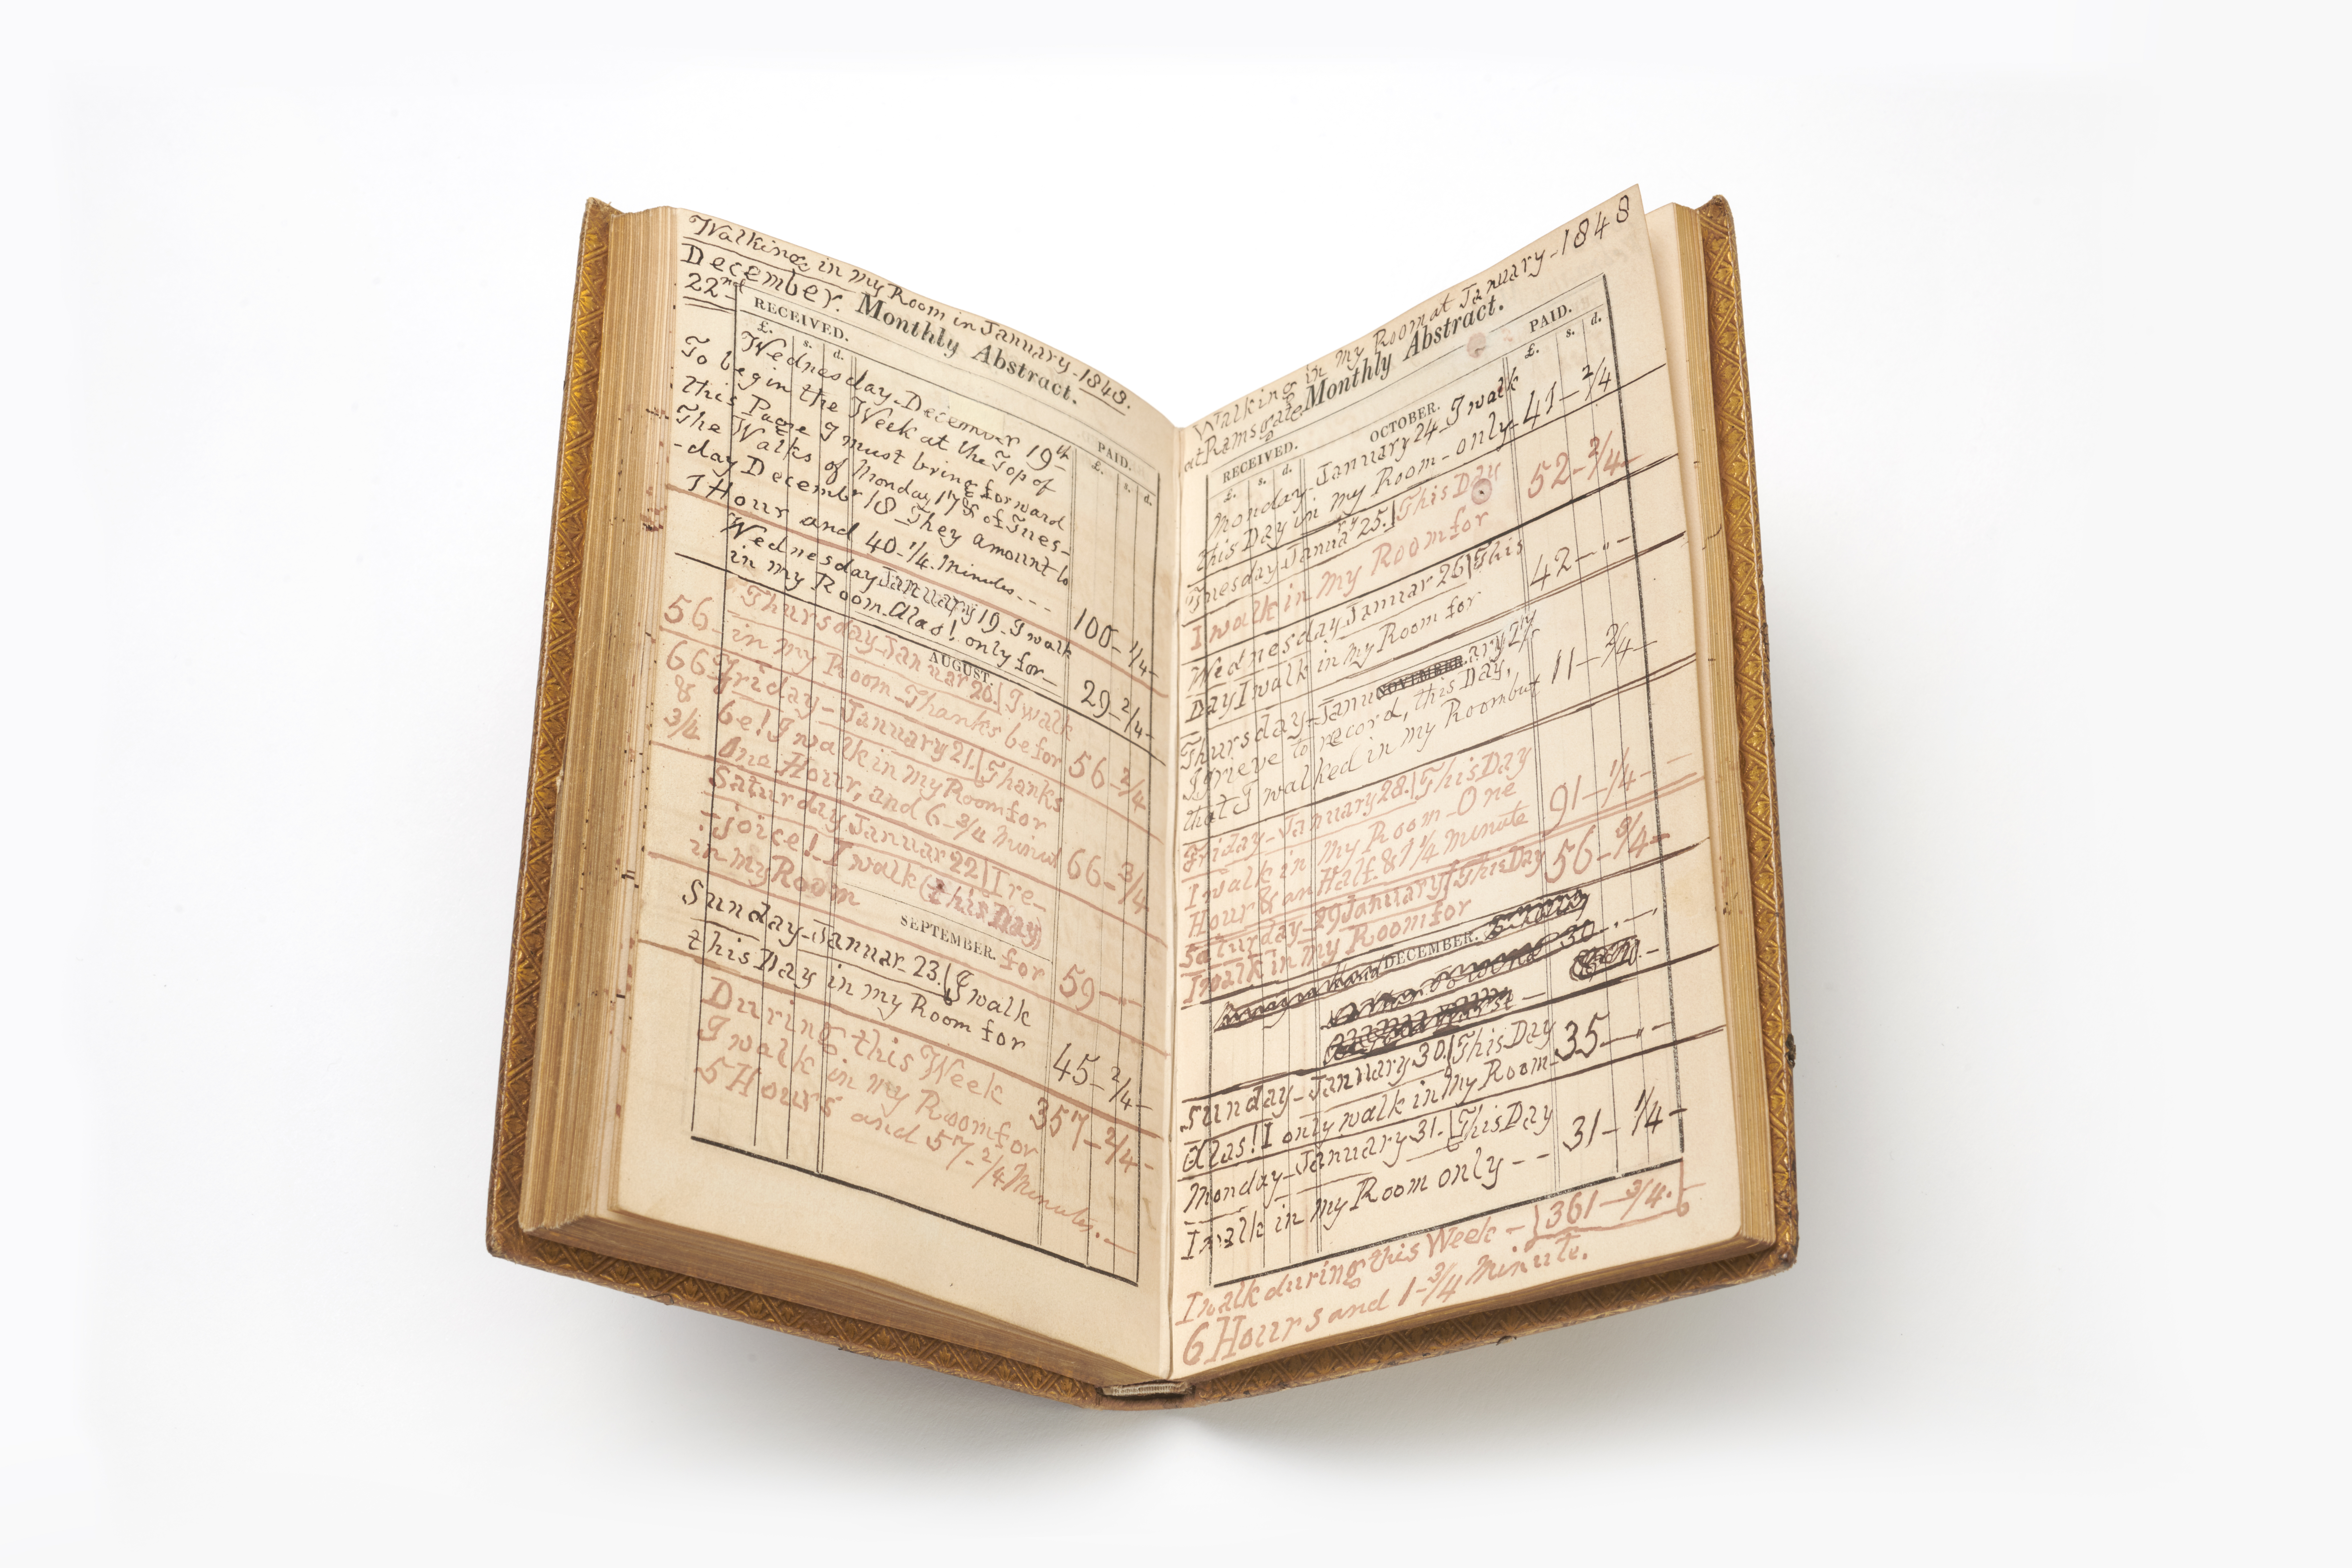 Walking in my Room in January-1848.
December.
22nd
Monthly Abstract.
RECEIVED.
PAID.
£. s. d.
£. s. d.
Wednesday-December 19th
To begin the Week at the Top of
this Page I must bring forward
The Walks of Monday, 17 & of Tues-
-day December 18- They amount to
1 Hour and 40-1/4. Minutes--- 100-1/4-
Wednesday January 19- I walk
in my Room- Alas! only for- 29-2/4-
AUGUST.
Thursday- Januar 20.| I walk
56- in my Room- Thanks be for 56-2/4
66 Friday- January 21.| Thanks
& be! I walk in my Room for
3/4 One Hour, and 6-3/4 Minut 66-3/4
Saturday January 22| I re-
-joice!- I walk (this Day)
in my Room
SEPTEMBER.
for 59--
Sunday- Januar- 23.| I walk
this Day in my Room for 45-2/4-
During this Week
I walk in my Room for 357-2/4-
5 Hours and 57-2/4 Minutes.-
Walking in my Room at January-1848
at Ramsgate
Monthly Abstract.
RECEIVED.
OCTOBER.
PAID.
£. s. d.
£. s. d.
Monday- January 24- I walk
this Day in my Room- only- 41-2/4
Tuesday Janua'ry 25.| This Day
I walk in my Room for 52-3/4-
Wednesday Januar 26| This
Day I walk in my Room for 42-"-
NOVEMBER.
Thursday- January 27
I grieve to record, this Day,
that I walked in my Room but 11-3/4-
Friday- January 28.| This Day
I walk in my Room- One
Hour & an Half. & 1 1/4 Minute 91-1/4-
Saturday- 29 January| This Day
I walk in my Room for 56-3/4-
DECEMBER.
30
Sunday- January 30.| This Day
Alas! I only walk in my Room- 35-"-
Monday- January 31.| This Day
I walk in my Room only-- 31-1/4-
I walk during this Week-| 361-3/4.
6 Hours and 1-3/4 Minute.